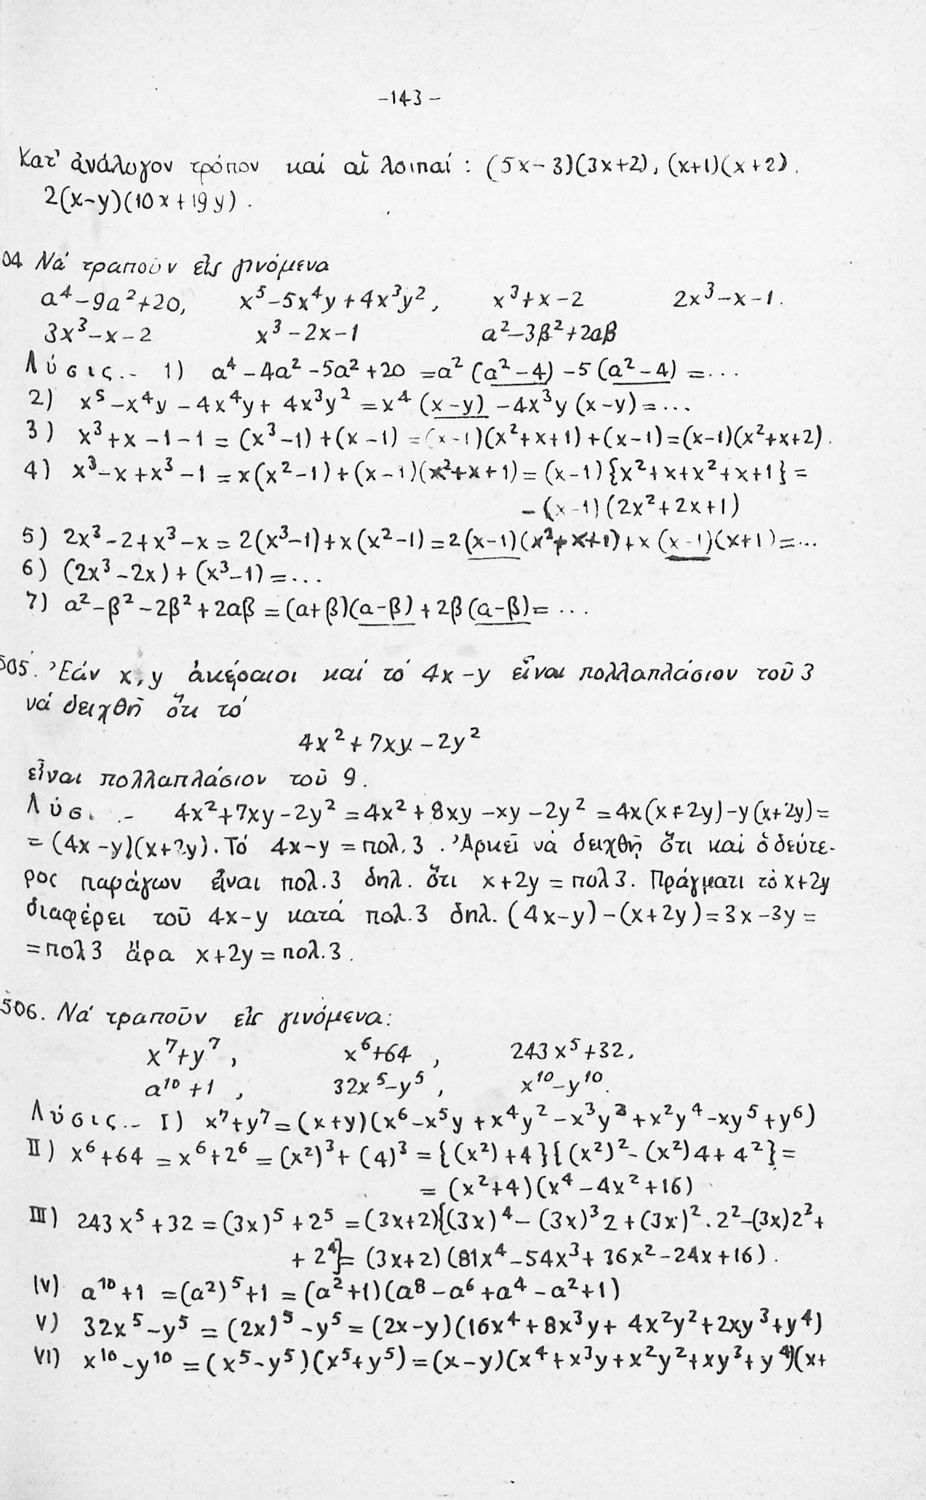 -143-
Κατ' ἀνάλογον τρόπον καί αἱ λοιπαί : (5x-3)(3x+2), (x+1)(x+2),
2(x-y)(10x+19y).
04 Νά τραποῦν εἰς γινόμενα
α⁴-9α²+20, x⁵-5x⁴y+4x³y², x³+x-2 2x³-x-1.
3x³-x-2 x³-2x-1 α²-3β²+2αβ
Λύσις.- 1) α⁴-4α²-5α²+20 =α²(α²-4)-5(α²-4) =...
2) x⁵-x⁴y-4x⁴y+4x³y² =x⁴(x-y)-4x³y(x-y)=...
3) x³+x-1-1 = (x³-1)+(x-1) =(x-1)(x²+x+1)+(x-1)=(x-1)(x²+x+2).
4) x³-x+x³-1 =x(x²-1)+(x-1)(x²+x+1)= (x-1){x²+x+x²+x+1} =
=(x-1)(2x²+2x+1)
5) 2x³-2+x³-x = 2(x³-1)+x(x²-1) =2(x-1)(x²+x+1)+x(x-1)(x+1)=...
6) (2x³-2x)+(x³-1)=...
7) α²-β²-2β²+2αβ =(α+β)(α-β)+2β(α-β)= ...
505. Ἐάν x,y ἀκέραιοι καί τό 4x-y εἶναι πολλαπλάσιον τοῦ 3
νά δειχθῆ ὅτι τό
4x²+7xy-2y²
εἶναι πολλαπλάσιον τοῦ 9.
Λύσ. .- 4x²+7xy-2y² =4x²+8xy-xy-2y² =4x(x+2y)-y(x+2y)=
= (4x-y)(x+2y). Τό 4x-y =πολ.3 . Ἀρκεῖ νά δειχθῆ ὅτι καί ὁ δεύτε-
ρος παράγων εἶναι πολ.3 δηλ. ὅτι x+2y = πολ3. Πράγματι τό x+2y
διαφέρει τοῦ 4x-y κατά πολ.3 δηλ. (4x-y)-(x+2y)=3x-3y=
=πολ3 ἄρα x+2y=πολ.3.
506. Νά τραποῦν εἰς γινόμενα:
x⁷+y⁷, x⁶+64, 243x⁵+32,
α¹⁰+1, 32x⁵-y⁵, x¹⁰-y¹⁰.
Λύσις.- I) x⁷+y⁷=(x+y)(x⁶-x⁵y+x⁴y²-x³y³+x²y⁴-xy⁵+y⁶)
II) x⁶+64 =x⁶+2⁶ = (x²)³+(4)³ ={(x²)+4}{(x²)²-(x²)4+4²}=
= (x²+4)(x⁴-4x²+16)
III) 243x⁵+32 =(3x)⁵+2⁵ =(3x+2){(3x)⁴-(3x)³2+(3x)².2²-(3x)2³+
+2⁴}= (3x+2)(81x⁴-54x³+36x²-24x+16).
IV) α¹⁰+1 =(α²)⁵+1 = (α²+1)(α⁸-α⁶+α⁴-α²+1)
V) 32x⁵-y⁵ = (2x)⁵-y⁵= (2x-y)(16x⁴+8x³y+4x²y²+2xy³+y⁴)
VI) x¹⁰-y¹⁰ =(x⁵-y⁵)(x⁵+y⁵)=(x-y)(x⁴+x³y+x²y²+xy³+y⁴)(x+